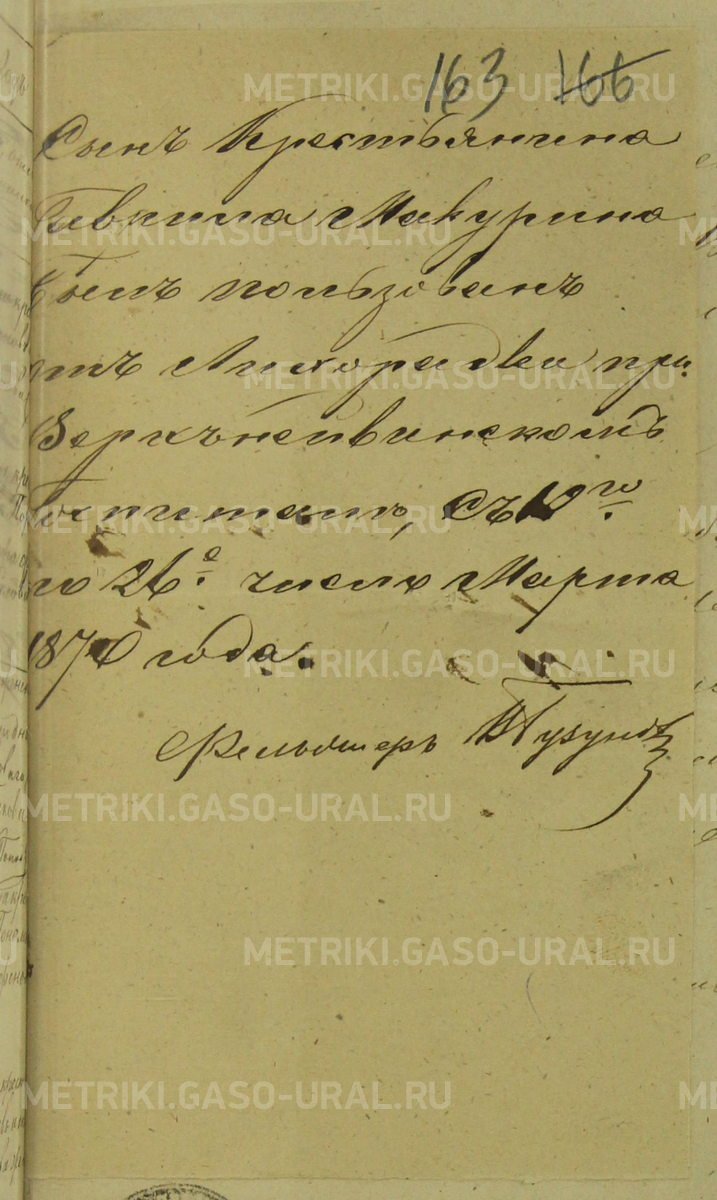 163 166
Сынъ Крестьянина
Мокурина
былъ пользованъ
отъ Лихорадки при
Верхънейвинскомъ
Госпиталѣ, Съ 19го
по 26е число Марта
1870 года.
Фельдшеръ
METRIKI.GASO-URAL.RU